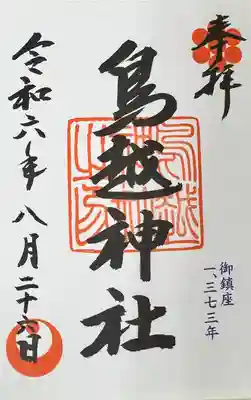 奉拝
御鎮座
一、三七三年
鳥越神社
令和六年八月二十六日